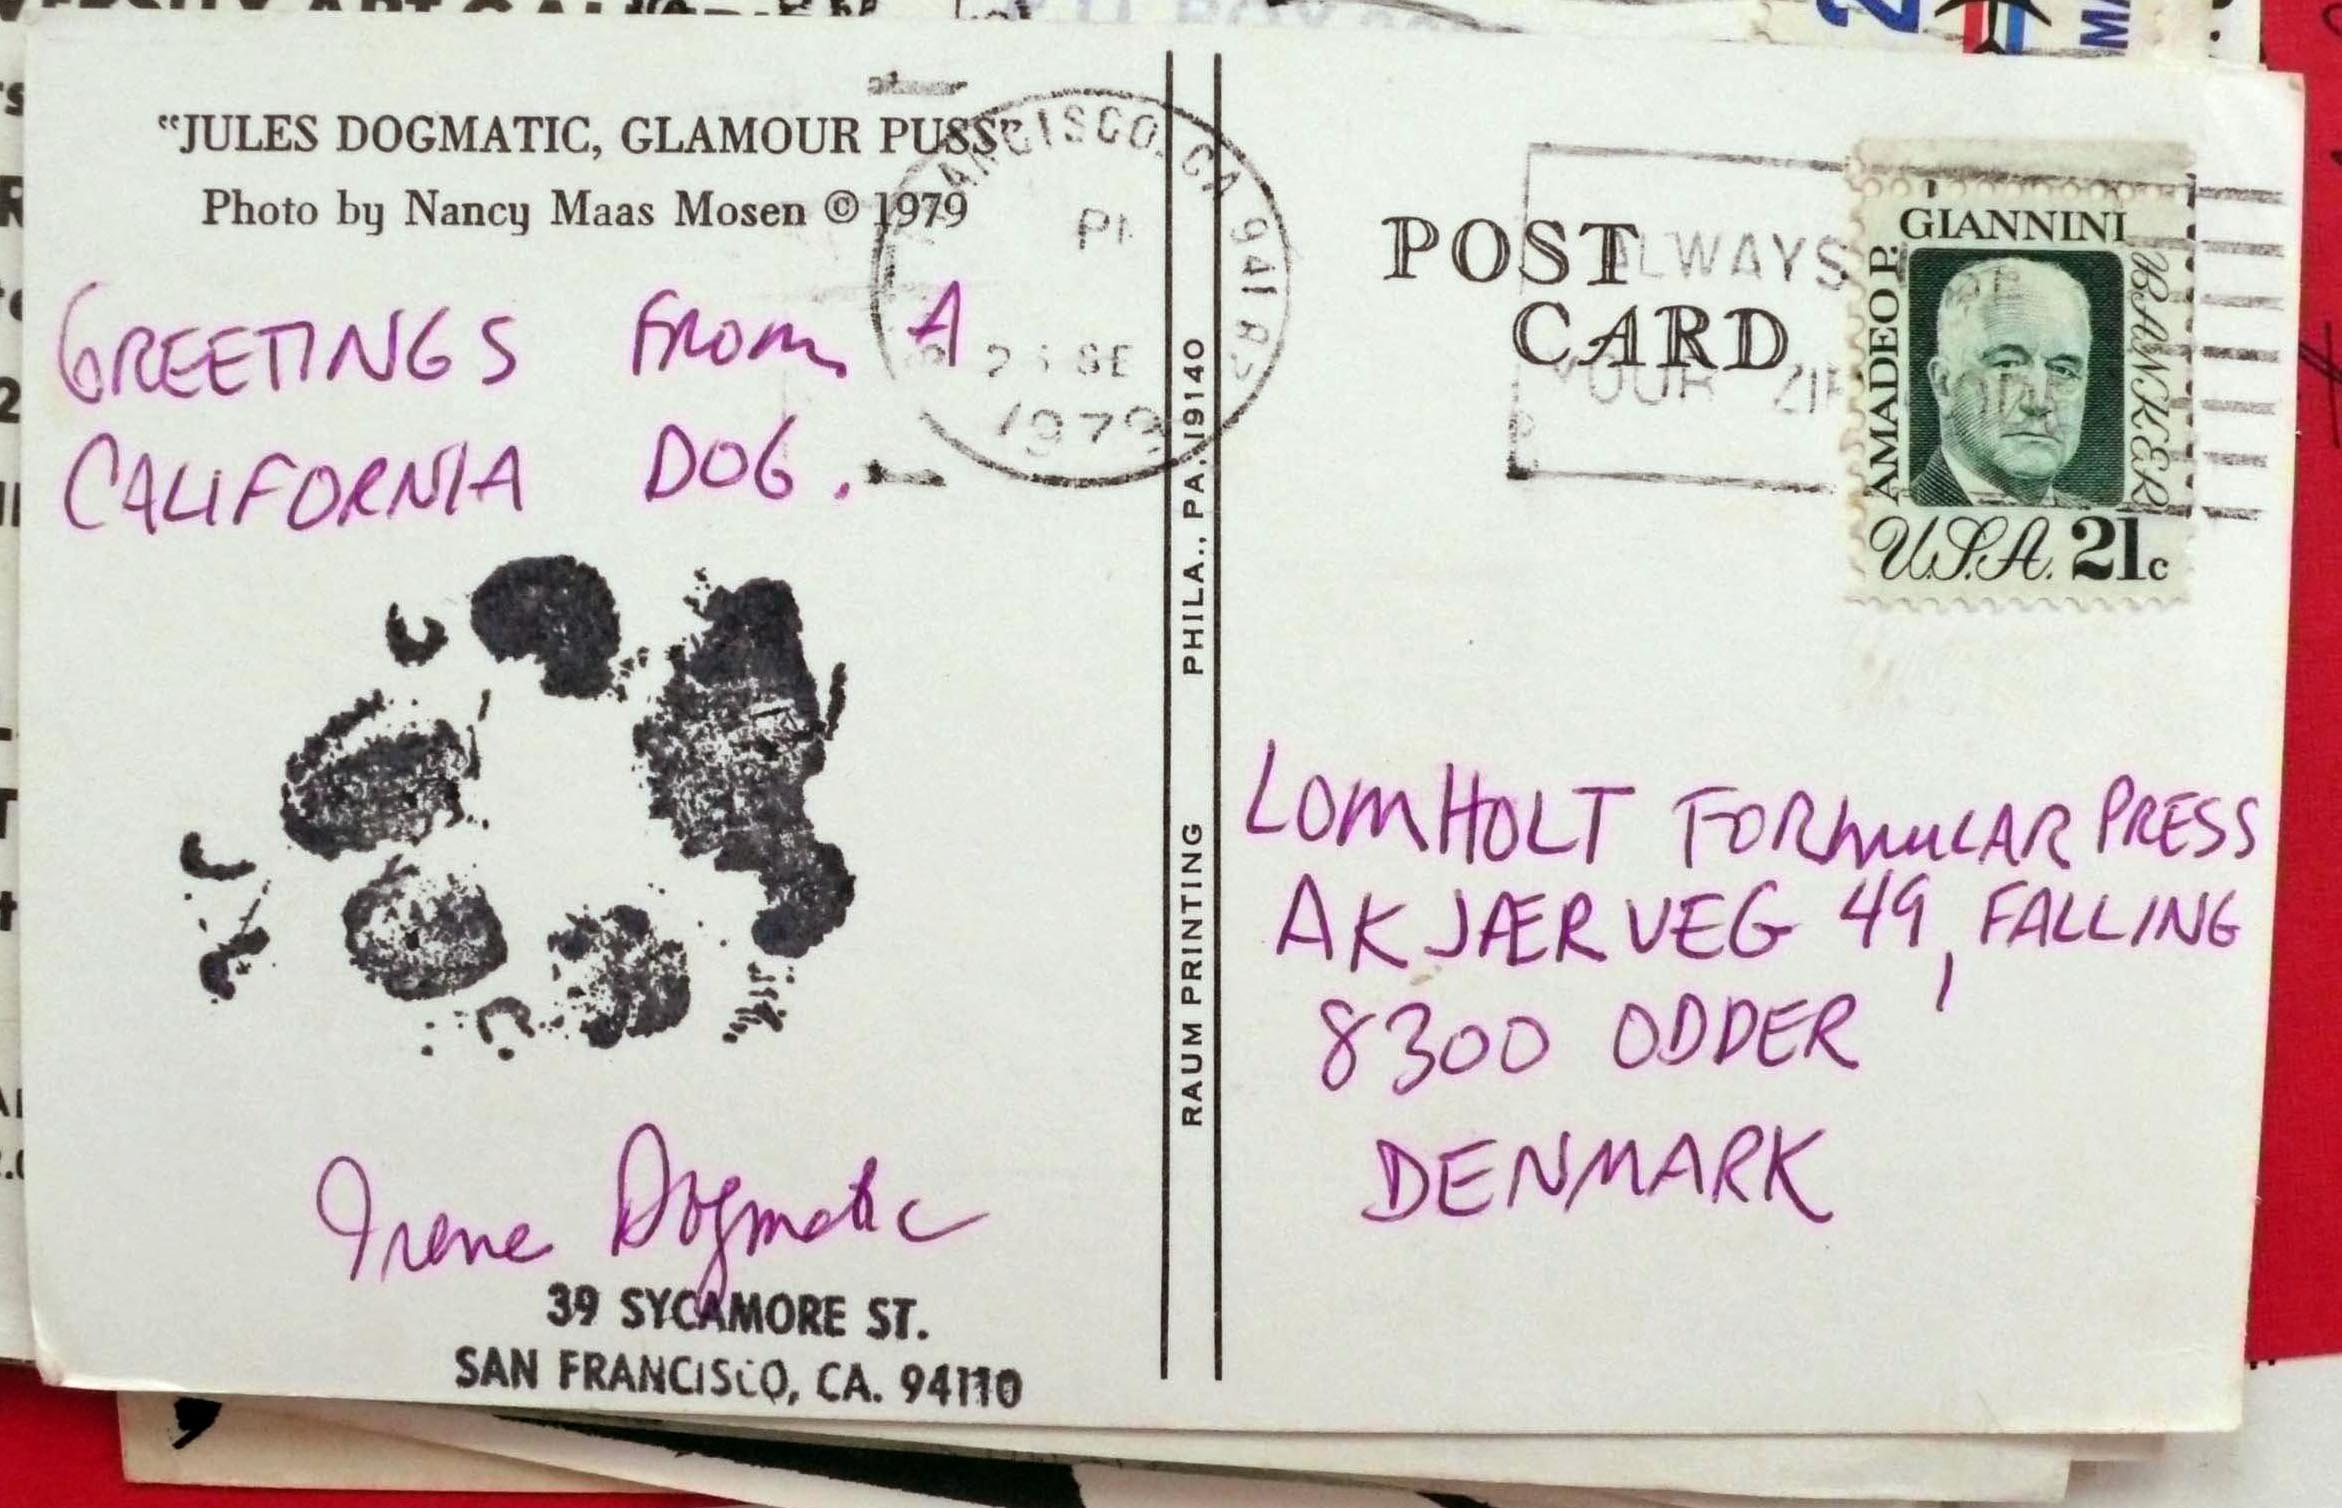 "JULES DOGMATIC, GLAMOUR PUSS"
Photo by Nancy Maas Mosen © 1979
GREETINGS FROM A
CALIFORNIA DOG.
Irene Dogmatic
39 SYCAMORE ST.
SAN FRANCISCO, CA. 94110
RAUM PRINTING PHILA., PA. 19140
ANCISCO, CA 941
PM
SE
1979
POST
CARD
ALWAYS
YOUR ZIP
AMADEO P. GIANNINI BANKER
U.S.A. 21c
LOMHOLT FORMULAR PRESS
AKJÆRVEG 49, FALLING
8300 ODDER
DENMARK